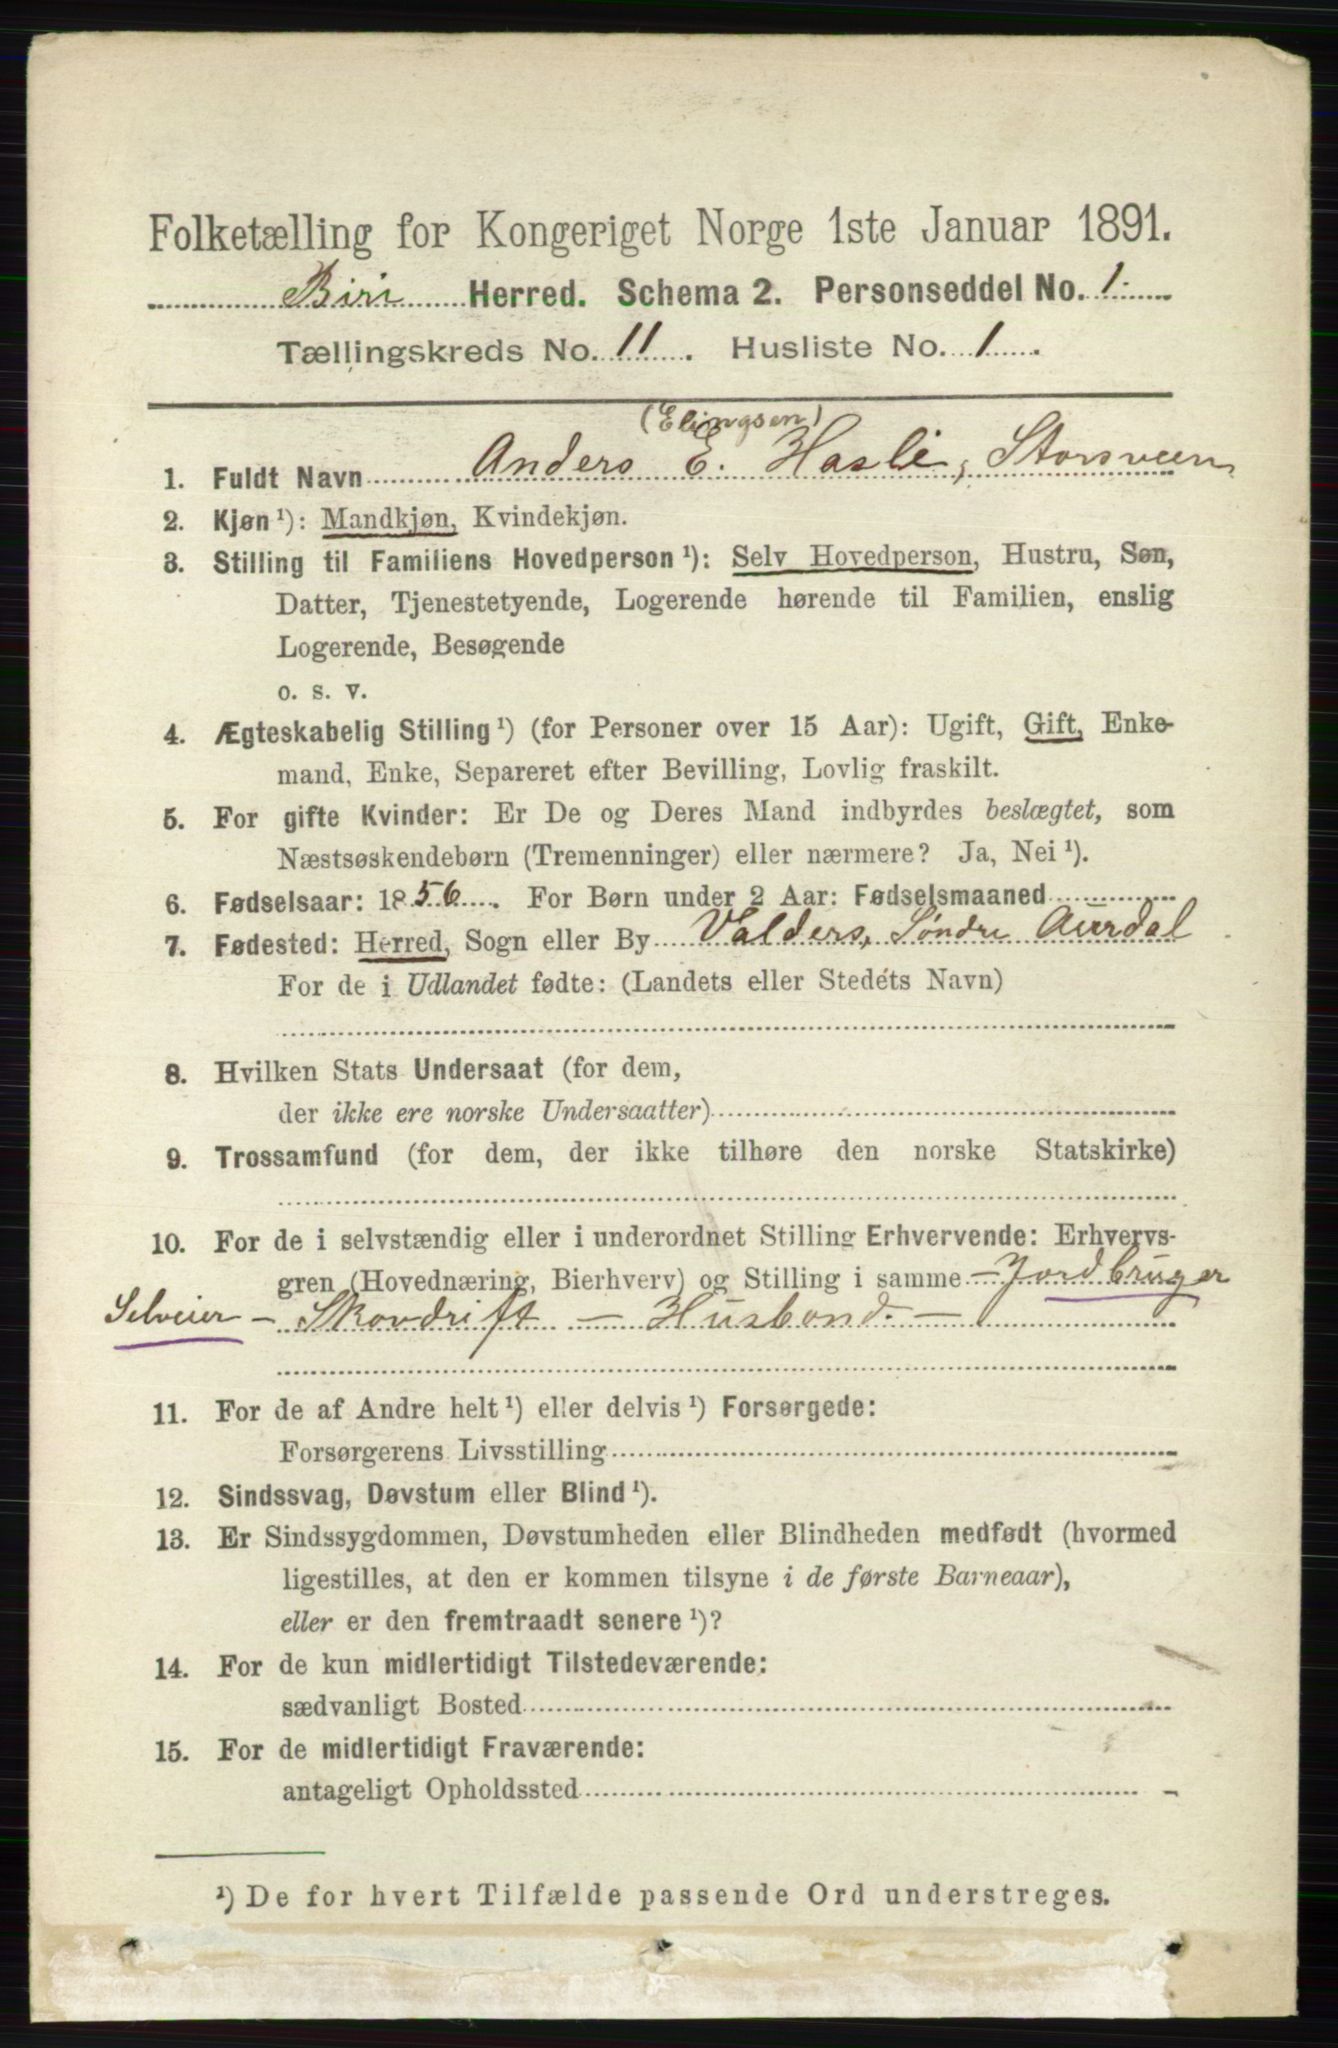 Folketælling for Kongeriget Norge 1ste Januar 1891.
Biri Herred. Schema 2. Personseddel No. 1.
Tællingskreds No. 11. Husliste No. 1.
(Elingsen)
1. Fuldt Navn Anders E. Hasli, Storsveen
2. Kjøn ¹): Mandkjøn, Kvindekjøn.
3. Stilling til Familiens Hovedperson ¹): Selv Hovedperson, Hustru, Søn,
Datter, Tjenestetyende, Logerende hørende til Familien, enslig
Logerende, Besøgende
o. s. v.
4. Ægteskabelig Stilling ¹) (for Personer over 15 Aar): Ugift, Gift, Enke-
mand, Enke, Separeret efter Bevilling, Lovlig fraskilt.
5. For gifte Kvinder: Er De og Deres Mand indbyrdes beslægtet, som
Næstsøskendebørn (Tremenninger) eller nærmere? Ja, Nei ¹).
6. Fødselsaar: 1856. For Børn under 2 Aar: Fødselsmaaned
7. Fødested: Herred, Sogn eller By Valders, Søndre Aurdal
For de i Udlandet fødte: (Landets eller Stedets Navn)
8. Hvilken Stats Undersaat (for dem,
der ikke ere norske Undersaatter)
9. Trossamfund (for dem, der ikke tilhøre den norske Statskirke)
10. For de i selvstændig eller i underordnet Stilling Erhvervende: Erhvervs-
gren (Hovednæring, Bierhverv) og Stilling i samme – Jordbruger
Selveier – Skovdrift – Husbond. –
11. For de af Andre helt ¹) eller delvis ¹) Forsørgede:
Forsørgerens Livsstilling
12. Sindssvag, Døvstum eller Blind ¹).
13. Er Sindssygdommen, Døvstumheden eller Blindheden medfødt (hvormed
ligestilles, at den er kommen tilsyne i de første Barneaar),
eller er den fremtraadt senere ¹)?
14. For de kun midlertidigt Tilstedeværende:
sædvanligt Bosted
15. For de midlertidigt Fraværende:
antageligt Opholdssted
¹) De for hvert Tilfælde passende Ord understreges.